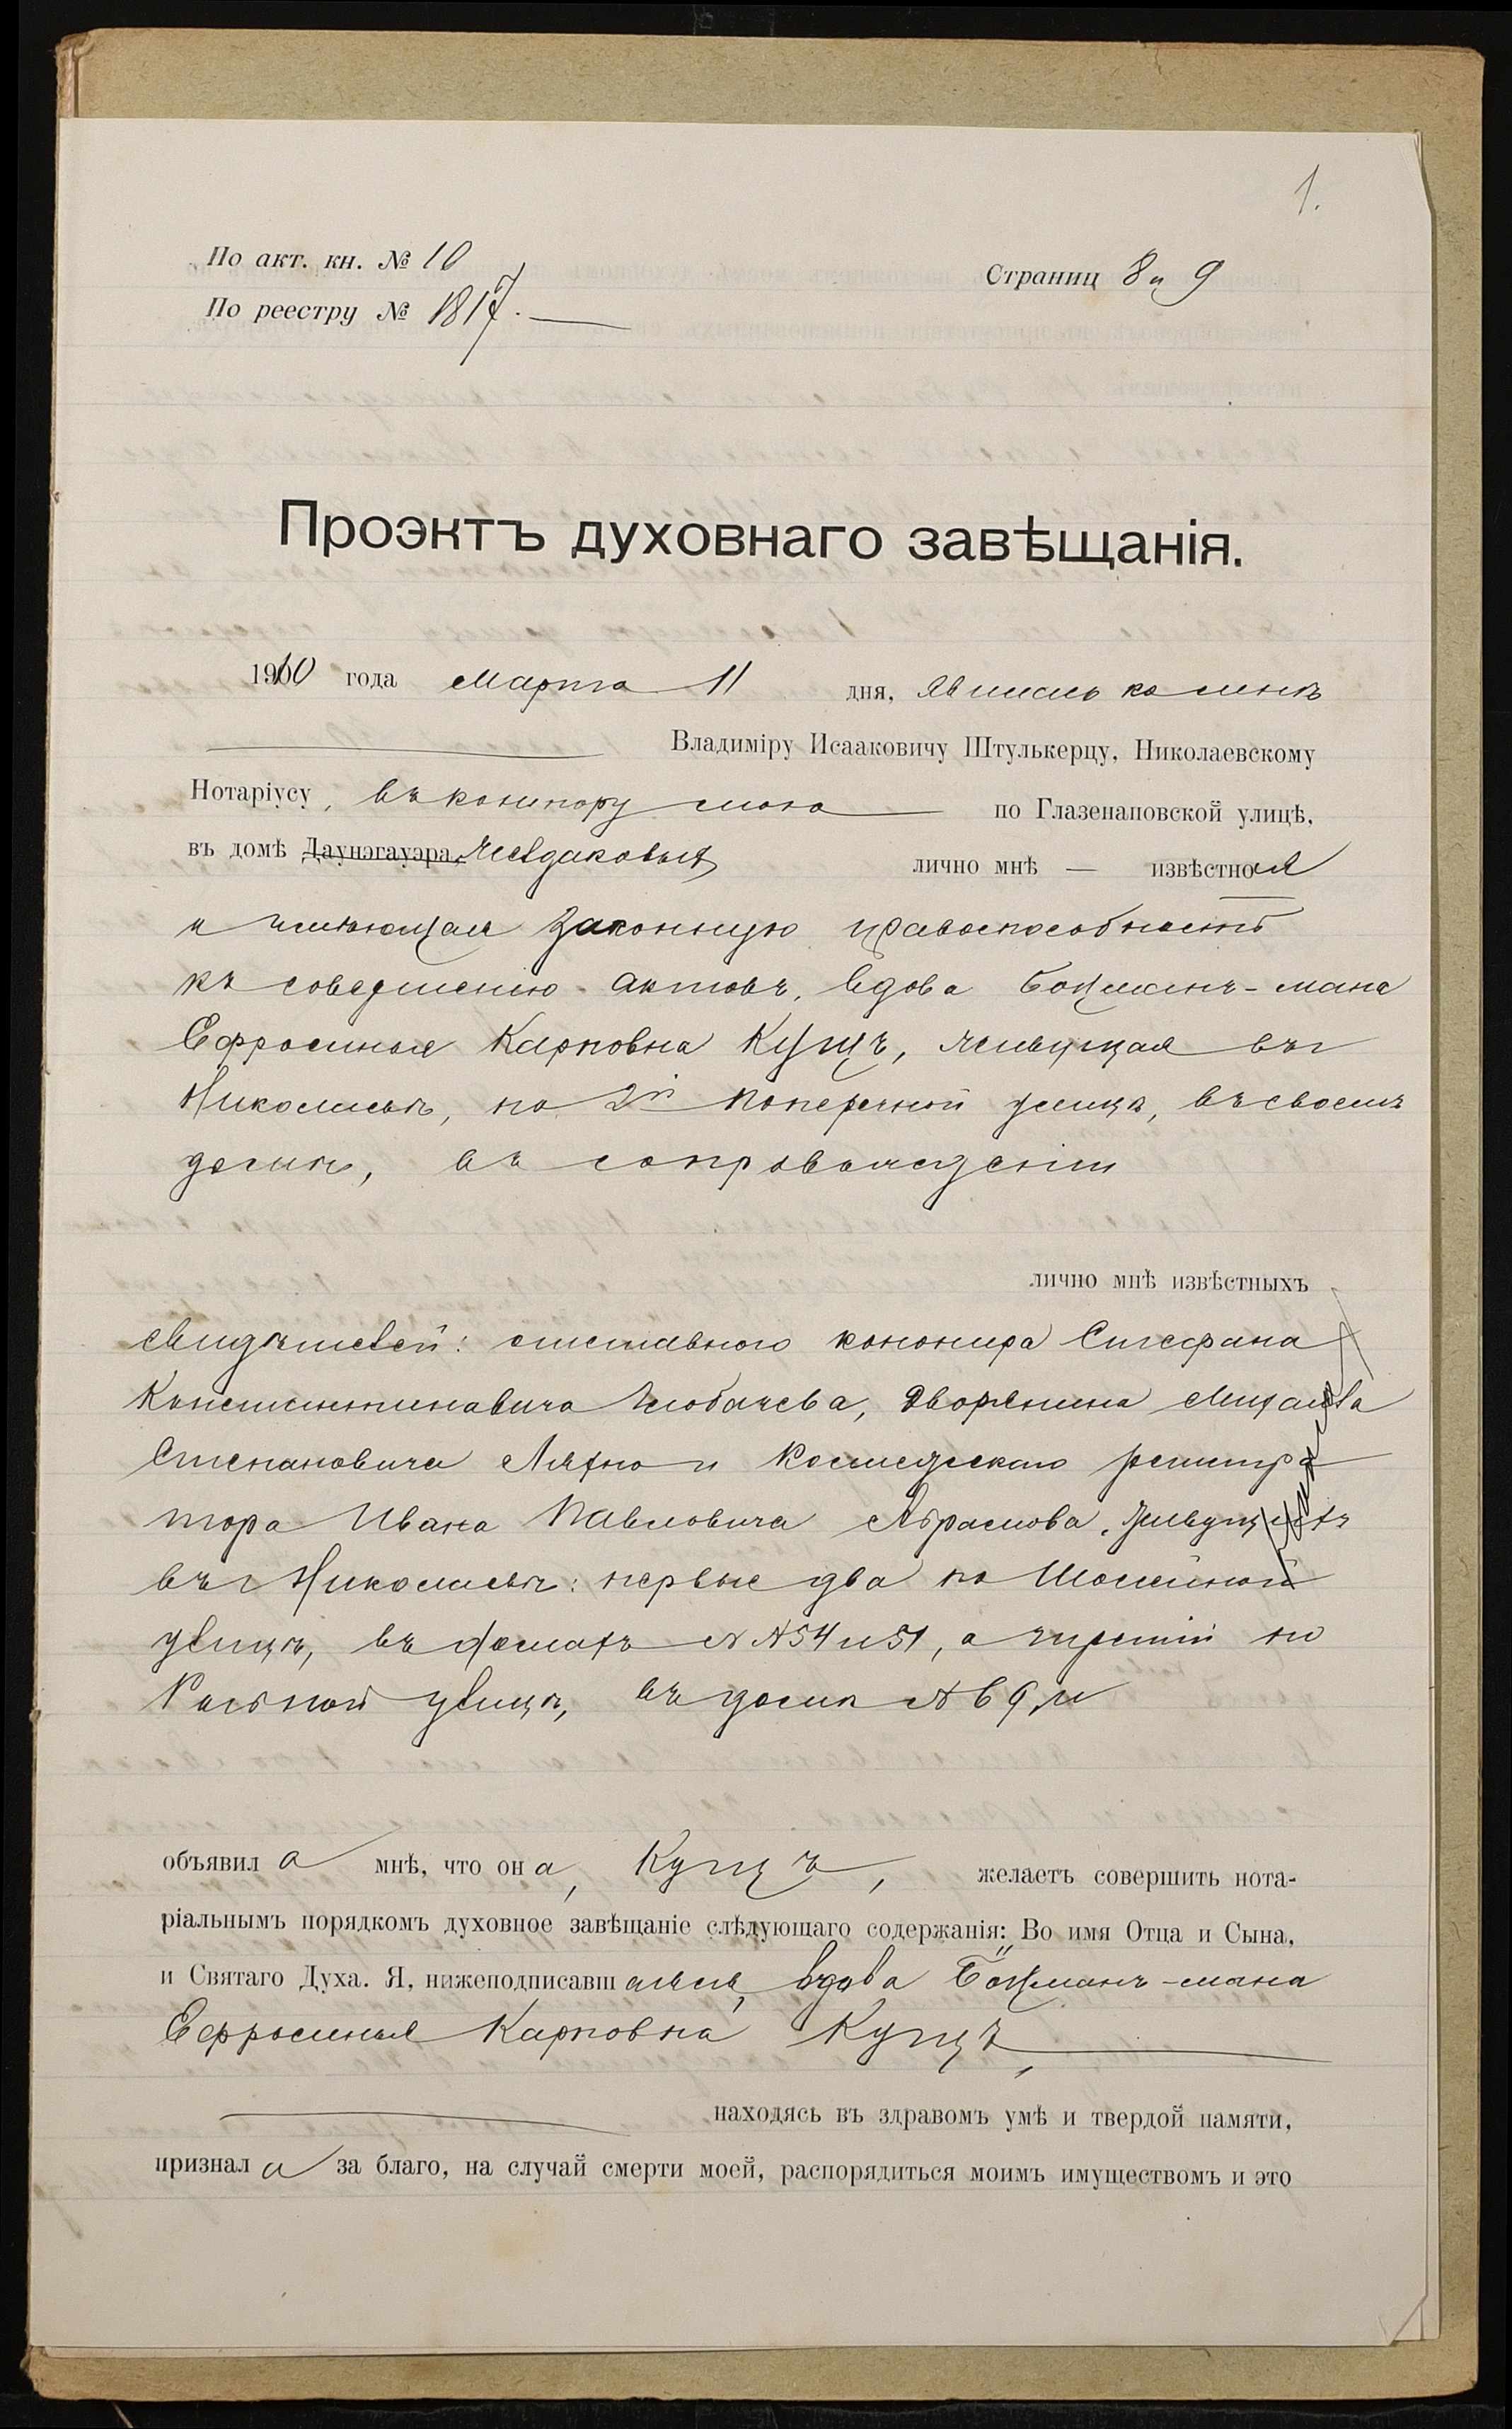 1.
По акт. кн. № 10
Страниц 8 и 9
По реестру № 1817.
Проэктъ духовнаго завѣщанія.
1910 года Марта 11 дня, явилась ко мнѣ
Владиміру Исааковичу Штулькерцу, Николаевскому
Нотаріусу, въ контору мою по Глазенаповской улицѣ,
въ домѣ Даунэгауэра, лично мнѣ — извѣстная
и имѣющая законную правоспособность
къ совершенію актовъ, вдова боцмонъ-мана
Ефросинья Карповна Кущъ, живущая въ г
Николаевѣ, по 2й поперечной улицѣ, въ своемъ
домѣ, въ сопровожденіи
лично мнѣ извѣстныхъ
свидѣтелей: отставного канонира Стефана
Константиновича дворянина Михаила
Степановича Ляхно и Коллежскаго регистра
тора Ивана Павловича Абрамова, живущихъ
въ г Николаевѣ: первые два по
улицѣ, въ домахъ № №54 и 51, а третій по
улицѣ, въ домѣ № 69, и
объявила мнѣ, что она, Кущъ, желаетъ совершить нота-
ріальнымъ порядкомъ духовное завѣщаніе слѣдующаго содержанія: Во имя Отца и Сына,
и Святаго Духа. Я, нижеподписавшаяся, вдова Боцманъ-мана
Ефросинья Карповна Кущъ,
находясь въ здравомъ умѣ и твердой памяти,
признала за благо, на случай смерти моей, распорядиться моимъ имуществомъ и это